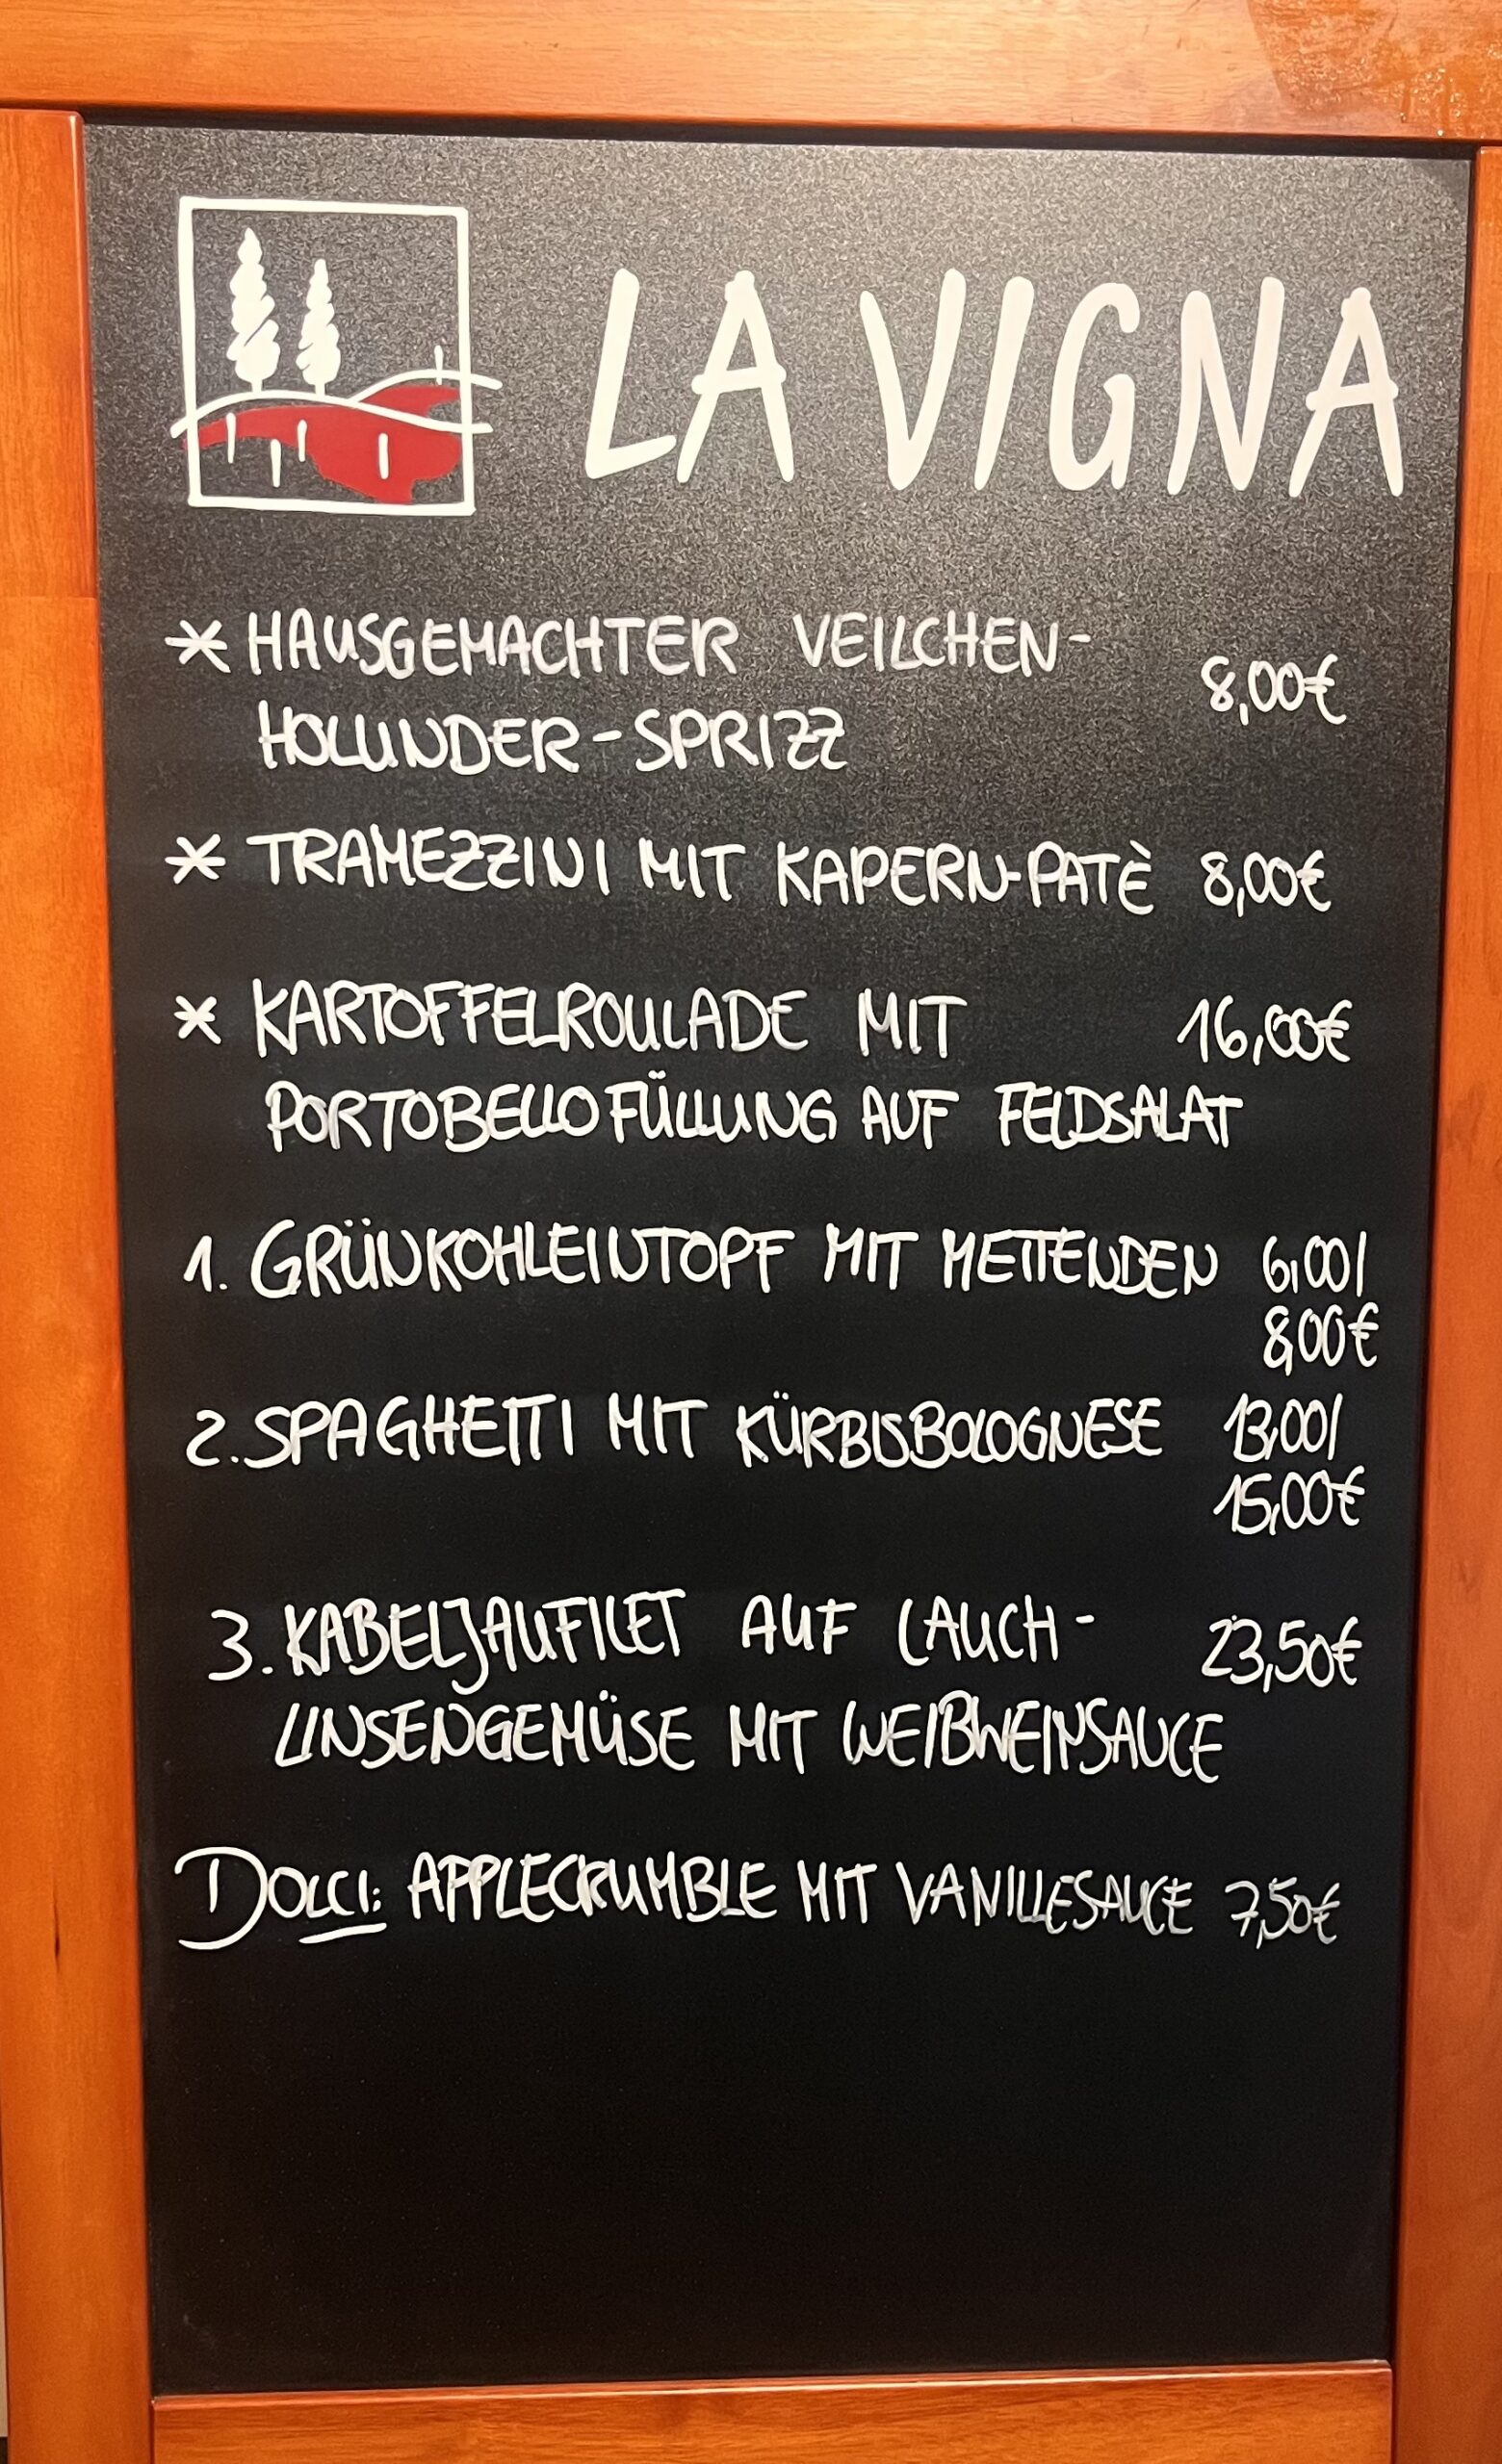 LA VIGNA
* HAUSGEMACHTER VEILCHEN- 8,00€
HOLUNDER-SPRIZZ
* TRAMEZZINI MIT KAPERN-PATÈ 8,00€
* KARTOFFELROULADE MIT 16,00€
PORTOBELLOFÜLLUNG AUF FELDSALAT
1. GRÜNKOHLEINTOPF MIT METTENDEN 6,00/
8,00€
2. SPAGHETTI MIT KÜRBISBOLOGNESE 13,00/
15,00€
3. KABELJAUFILET AUF LAUCH- 23,50€
LINSENGEMÜSE MIT WEIßWEINSAUCE
DOLCI: APPLECRUMBLE MIT VANILLESAUCE 7,50€